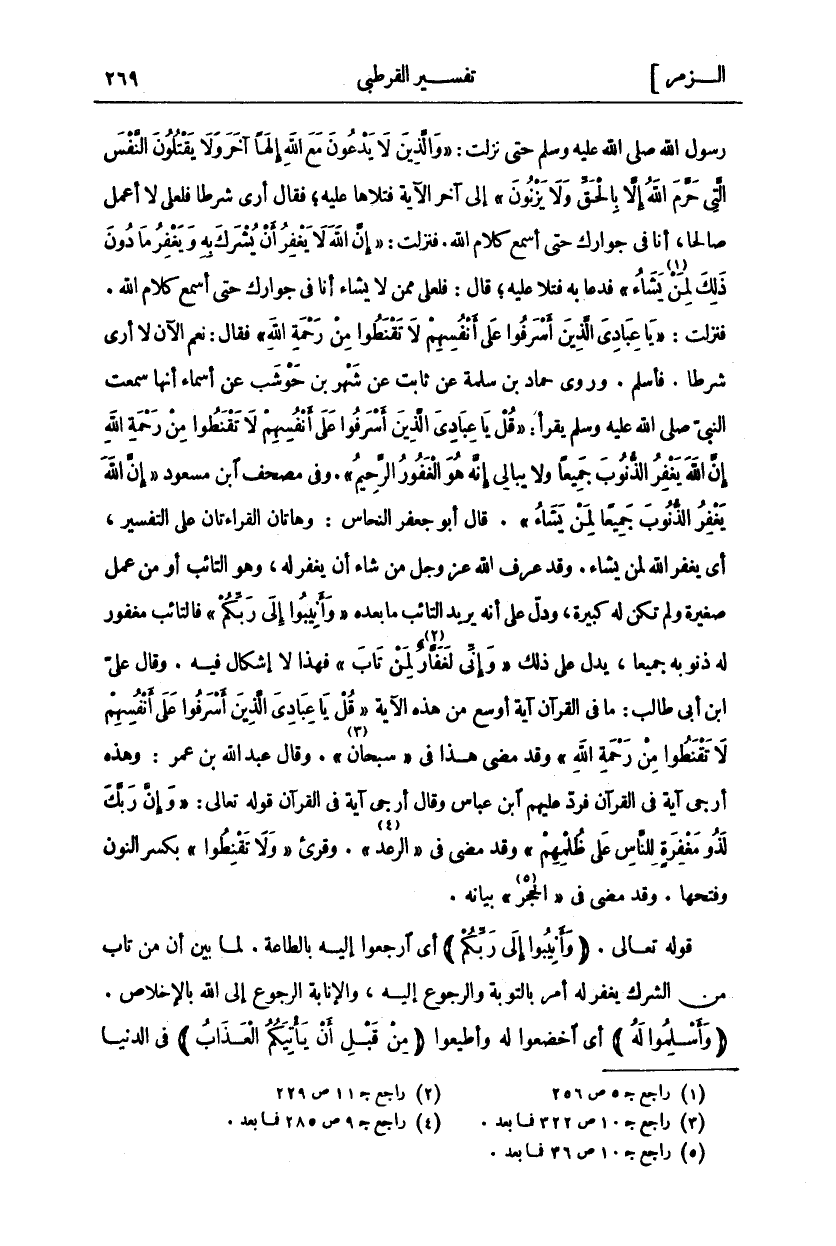 الـــزمر ] تفســـير القرطبى ٢٦٩
رسول الله صلى الله عليه وسلم حتى نزلت : «وَالَّذِينَ لَا يَدْعُونَ مَعَ اللهِ إِلَهًا آخَرَ وَلَا يَقْتُلُونَ النَّفْسَ
الَّتِى حَرَّمَ اللهُ إِلَّا بِالْحَقِّ وَلَا يَزْنُونَ » إلى آخر الآية فتلاها عليه ؛ فقال أرى شرطا فلعلى لا أعمل
صالحا ، أنا فى جوارك حتى أسمع كلام الله . فنزلت : « إِنَّ اللهَ لَا يَغْفِرُ أَنْ يُشْرَكَ بِهِ وَيَغْفِرُ مَا دُونَ
ذَلِكَ لِمَنْ يَشَاءُ (١) » فدعا به فتلا عليه ؛ قال : فلعلى ممن لا يشاء أنا فى جوارك حتى أسمع كلام الله .
فنزلت : «يَا عِبَادِىَ الَّذِينَ أَسْرَفُوا عَلَى أَنْفُسِهِمْ لَا تَقْنَطُوا مِنْ رَحْمَةِ اللهِ» فقال : نعم الآن لا أرى
شرطا . فأسلم . وروى حماد بن سلمة عن ثابت عن شَهْر بن حَوْشَب عن أسماء أنها سمعت
النبىّ صلى الله عليه وسلم يقرأ : «قُلْ يَا عِبَادِىَ الَّذِينَ أَسْرَفُوا عَلَى أَنْفُسِهِمْ لَا تَقْنَطُوا مِنْ رَحْمَةِ اللهِ
إِنَّ اللهَ يَغْفِرُ الذُّنُوبَ جَمِيعًا ولا يبالى إِنَّهُ هُوَ الْغَفُورُ الرَّحِيمُ» . وفى مصحف ٱبن مسعود «إِنَّ اللهَ
يَغْفِرُ الذُّنُوبَ جَمِيعًا لِمَنْ يَشَاءُ » . قال أبو جعفر النحاس : وهاتان القراءتان على التفسير ،
أى يغفر الله لمن يشاء . وقد عرف الله عز وجل من شاء أن يغفر له ، وهو التائب أو من عمل
صغيرة ولم تكن له كبيرة ، ودلّ على أنه يريد التائب ما بعده « وَأَنِيبُوا إِلَى رَبِّكُمْ » فالتائب مغفور
له ذنوبه جميعا ، يدل على ذلك « وَإِنِّى لَغَفَّارٌ لِمَنْ تَابَ (٢) » فهذا لا إشكال فيه . وقال علىّ
ابن أبى طالب : ما فى القرآن آية أوسع من هذه الآية « قُلْ يَا عِبَادِىَ الَّذِينَ أَسْرَفُوا عَلَى أَنْفُسِهِمْ
لَا تَقْنَطُوا مِنْ رَحْمَةِ اللهِ » وقد مضى هــذا فى « سبحان (٣) » . وقال عبد الله بن عمر : وهذه
أرجى آية فى القرآن فردّ عليهم ٱبن عباس وقال أرجى آية فى القرآن قوله تعالى : « وَإِنَّ رَبَّكَ
لَذُو مَغْفِرَةٍ لِلنَّاسِ عَلَى ظُلْمِهِمْ » وقد مضى فى « الرعد (٤) » . وقرئ « وَلَا تَقْنِطُوا » بكسر النون
وفتحها . وقد مضى فى « الحِجْر (٥) » بيانه .
قوله تعــالى . ﴿ وَأَنِيبُوا إِلَى رَبِّكُمْ ﴾ أى ٱرجعوا إليــه بالطاعة . لمــا بين أن من تاب
من الشرك يغفر له أمر بالتوبة والرجوع إليــه ، والإنابة الرجوع إلى الله بالإخلاص .
﴿ وَأَسْــلِمُوا لَهُ ﴾ أى ٱخضعوا له وأطيعوا ﴿ مِنْ قَبْــلِ أَنْ يَأْتِيَكُمُ الْعَــذَابُ ﴾ فى الدنيــا
(١) راجع جـ ٥ ص ٢٥٦ (٢) راجع جـ ١١ ص ٢٢٩
(٣) راجع جـ ١٠ ص ٣٢٢ فــا بعد . (٤) راجع جـ ٩ ص ٢٨٥ فــا بعد .
(٥) راجع جـ ١٠ ص ٣٦ فــا بعد .